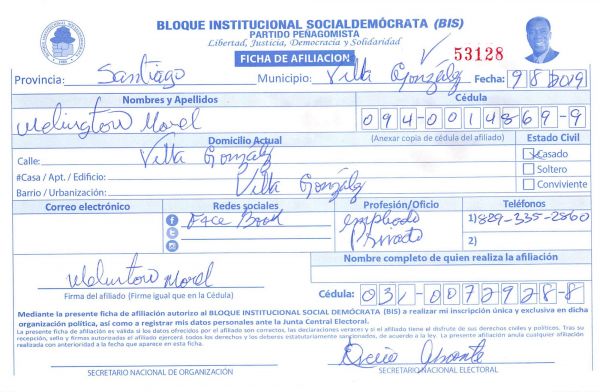 BLOQUE INSTITUCIONAL SOCIALDEMÓCRATA (BIS)
PARTIDO PEÑAGOMISTA
Libertad, Justicia, Democracia y Solidaridad
FICHA DE AFILIACIÓN
53128
Provincia: Santiago Municipio: Villa González Fecha: 9 8 2019
Nombres y Apellidos Cédula
Welington Morel 094-0014869-9
Domicilio Actual (Anexar copia de cédula del afiliado) Estado Civil
Calle: Villa González Casado
#Casa / Apt. / Edificio: Soltero
Barrio / Urbanización: Villa González Conviviente
Correo electrónico Redes sociales Profesión/Oficio Teléfonos
Face Book Empleado 1) 829-335-2860
Privado 2)
Nombre completo de quien realiza la afiliación
Welinton Morel
Firma del afiliado (Firme igual que en la Cédula) Cédula: 031-0072928-8
Mediante la presente ficha de afiliación autorizo al BLOQUE INSTITUCIONAL SOCIAL DEMÓCRATA (BIS) a realizar mi inscripción única y exclusiva en dicha
organización política, así como a registrar mis datos personales ante la Junta Central Electoral.
La presente ficha de afiliación es valida si los datos ofrecidos por el afiliado son correctos, las declaraciones veraces y si el afiliado tiene el disfrute de sus derechos civiles y políticos. Tras su
recepción, sello y firmas autorizadas el afiliado ejercerá todos los derechos y los deberes estatutariamente sancionados, de acuerdo a la ley. La presente afiliación anula cualquier afiliación
realizada con anterioridad a la fecha que aparece en esta ficha.
SECRETARIO NACIONAL DE ORGANIZACIÓN SECRETARIO NACIONAL ELECTORAL